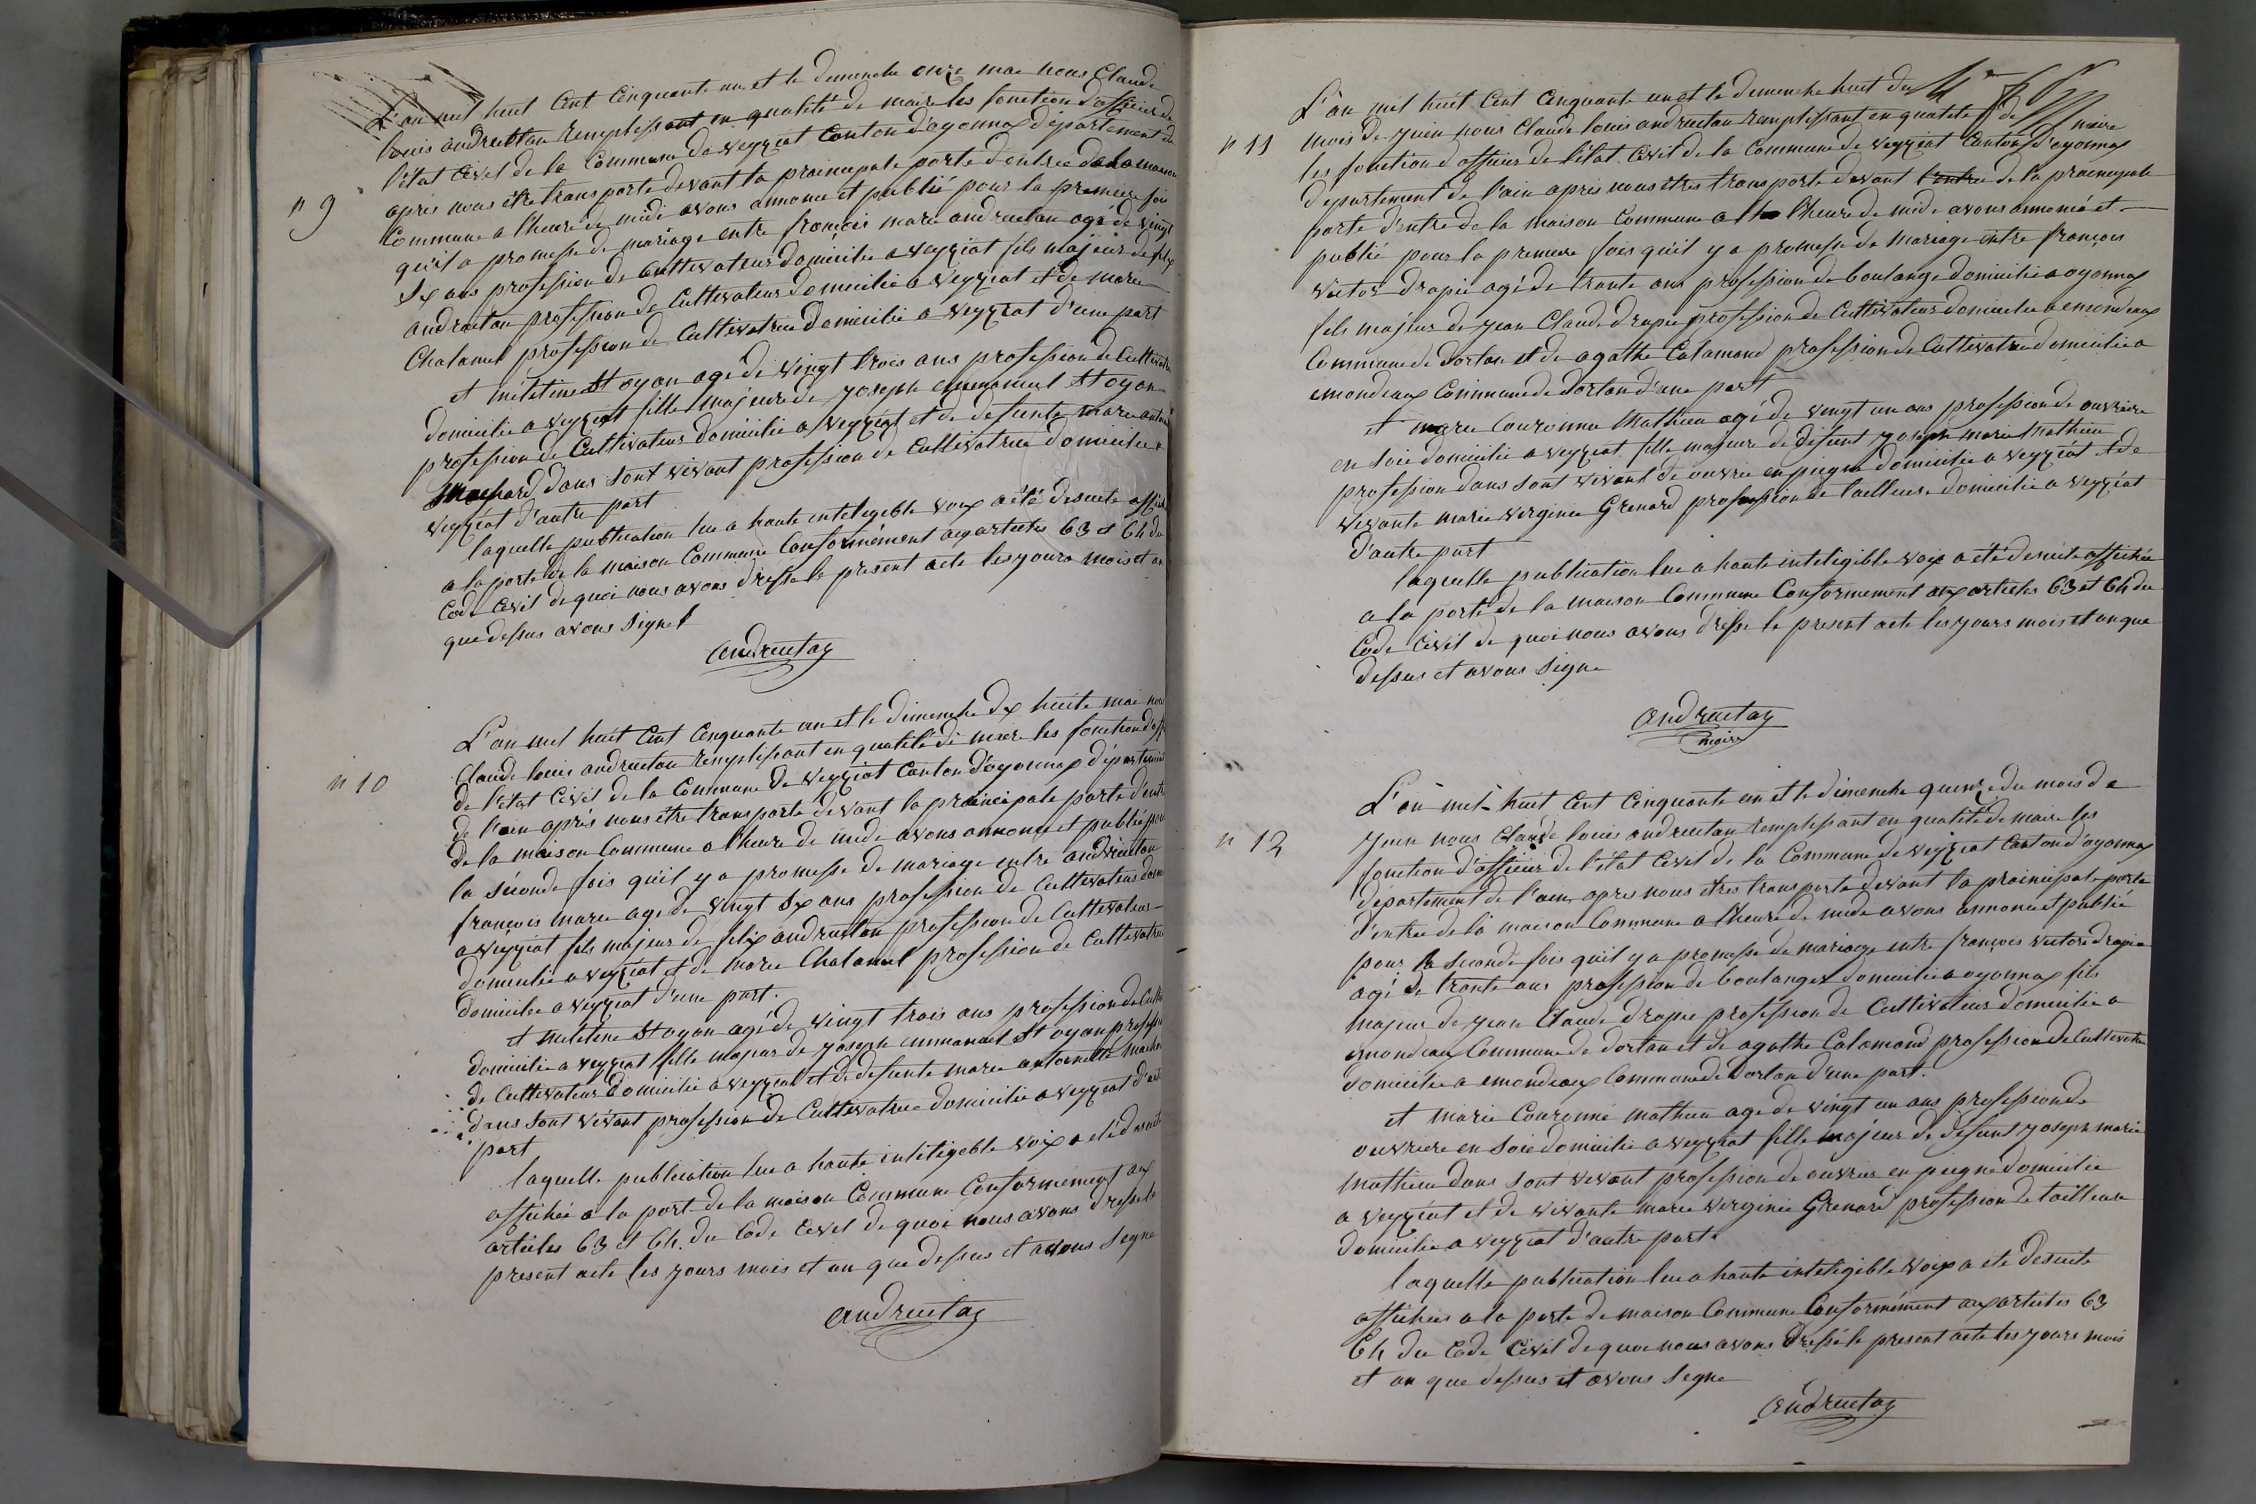 L'an mil huit Cent Cinquante un et le dimenche onze mai nous Claude
louis andruetan remplissant en qualité de maire les fonction d'officier de
l'état Civil de la Commune de veyziat Canton d'oyonnax département de
n 9
après nous être transporte devant la prainsipale porte d'entrée de la maison
Commune a l'heure de midi avons annoncé et publié pour la premier fois
qu'il a promesse de mariage entre françois marie andruetan agé de vingt
six ans profession de Cultivateur domicilie a veyziat fils majeur de felix
andruetan profession de Cultivateur domicilie a veyziat et de marie
Chalamel profession de Cultivatrice domicilie a veyziat d'une part
et méletine St oyan age de vingt trois ans profession de Cultivatrice
domicilie a veyziat fille majeure de yoseph emmanuel St oyan
profession de Cultivateur domicilie a veyziat et de defunte marie antoi
Machard dans sont vivant profession de Cultivatrice domicilie a
veyziat d'autre part
laquelle publication lue a haute inteligeble voix a été desuite affich
a la porte de la maison Commune Conformément aux articles 63 et 64 du
Code Civil de quoi nous avons dresse le present acte les yours mois et an
que dessus avons signet
andruetan
L'an mil huit Cent Cinquante un et le dimenche dix huite mai nou
n 10
Claude louis andruetan remplissant en qualité de maire les fonction d'off
de l'etat Civil de la Commune de veyziat Canton d'oyonnax département
de l'ain après nous être transporte devant la prainsipale porte d'entr
de la maison Commune a l'heure de midi avons annoncé et publié pour
la séconde fois qu'il y a promesse de mariage entre andruetan
françois marie age de vingt six ans profession de Cultivateur domi
a veyziat fils majeur de felix andruetan profession de Cultivateur
domicilie a veyziat et de marie Chalamel profession de Cultivatrice
domicilie a veyziat d'une part.
et meletine St oyan agé de vingt trois ans profession de Culti
domicilie a veyziat fille majeur de yoseph emmanuel St oyan professi
de Cultivateur domicilie a veyziat et de defunte marie antoinette Mach
dans sont vivant profession de Cultivatrice domicilie a veyziat d'aut
part
laquelle publication lue a haute inteligeble voix a été desuite
affichée a la port de la maison Commune Conformément aux
articles 63 et 64 du Code Civil de quoi nous avons dresse le
present acte les yours mois et an que dessus et avons signe
andruetan
L'an mil huit Cent Cinquante un et le dimenche huit du
n 11
mois de yuin nous Claude louis andruetan remplissant en qualité de maire
les fonction d'officier de l'état Civil de la Commune de veyziat Canton d'oyonnax
departement de l'ain après nous êtres transporte devant l'entre de la prainsipale
porte d'entre de la maison Commune a l'heure de midi avons annoncé et
publié pour la premiere fois qu'il y a promesse de mariage entre françois
victor drapié agé de trante ans profession de boulange domicilie a oyonnax
fils majeur de yean Claude drapie profession de Cultivateur domicilie a emondeaux
Commune de dortan et de agathe Calamand profession de Cultivatrice domicilie a
emondeaux Commune de dortan d'une part
et marie Couronne Mathieu agé de vingt un ans profession de ouvriere
en soie domicilie a veyziat fille majeure de défunt yoseph marie Mathieu
profession dans sont vivant de ouvrie en piegne domicilie a veyziat et de
vivante marie verginie Grenard profession de tailleuse domicilie a veyziat
d'autre part
laquelle publication lue a haute inteligible voix a été desuite affichée
a la porte de la maison Commune Conformement aux articles 63 et 64 du
Code Civil de quoi nous avons dresse le present acte les yours mois et an que
dessus et avons signe
andruetan
maire
L'an mil huit Cent Cinquante un et le dimenche quinze du mois de
n 12
yuin nous Claude louis andruetan remplissant en qualité de maire les
fonction d'officier de l'état Civil de la Commune de veyziat Canton d'oyonnax
département de l'ain, apres nous êtres transporte devant la prainsipale porte
d'entrée de la maison Commune a l'heure de midi avons annoncé et publié
pour la seconde fois qu'il y a promesse de mariage entre françois victore drapie
agé de trante ans profession de boulanger domicilie a oyonnax fils
majeur de yean Claude drapie profession de Cultivateur domicilie a
emondeau Commune de dortan et de agathe Calamand profession de Cultivatri
domicilie a emondeaux Commune de dortan d'une part.
et marie Couronné mathieu age de vingt un ans profession de
ouvriere en soie domicilie a veyziat fille majeur de défunt yoseph marie
Mathieu dans sont vivant profession de ouvrier en piegne domicilie
a veyziat et de vivante marie verginie Grenard profession de tailleuse
domicilie a veyziat d'autre part.
laquelle publication lue a haute inteligible voix a ete desuite
affichée a la porte de maison Commune Conformément aux articles 63
64 du Code Civil de quoi nous avons dressé le present acte les yours mois
et an que dessus et avons signe
andruetan